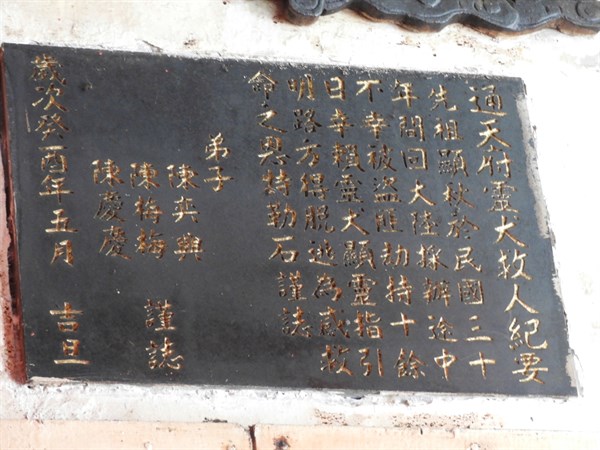 通天府靈犬救人紀要
先祖顯秋於民國三十
年間回大陸採辦途中
不幸被盜匪劫持十餘
日幸賴靈犬顯靈指引
明路方得脫逃為感救
命之恩特勒石謹誌
弟子
陳奕興
陳梅梅
陳慶慶
謹誌
歲次癸酉年五月 吉旦